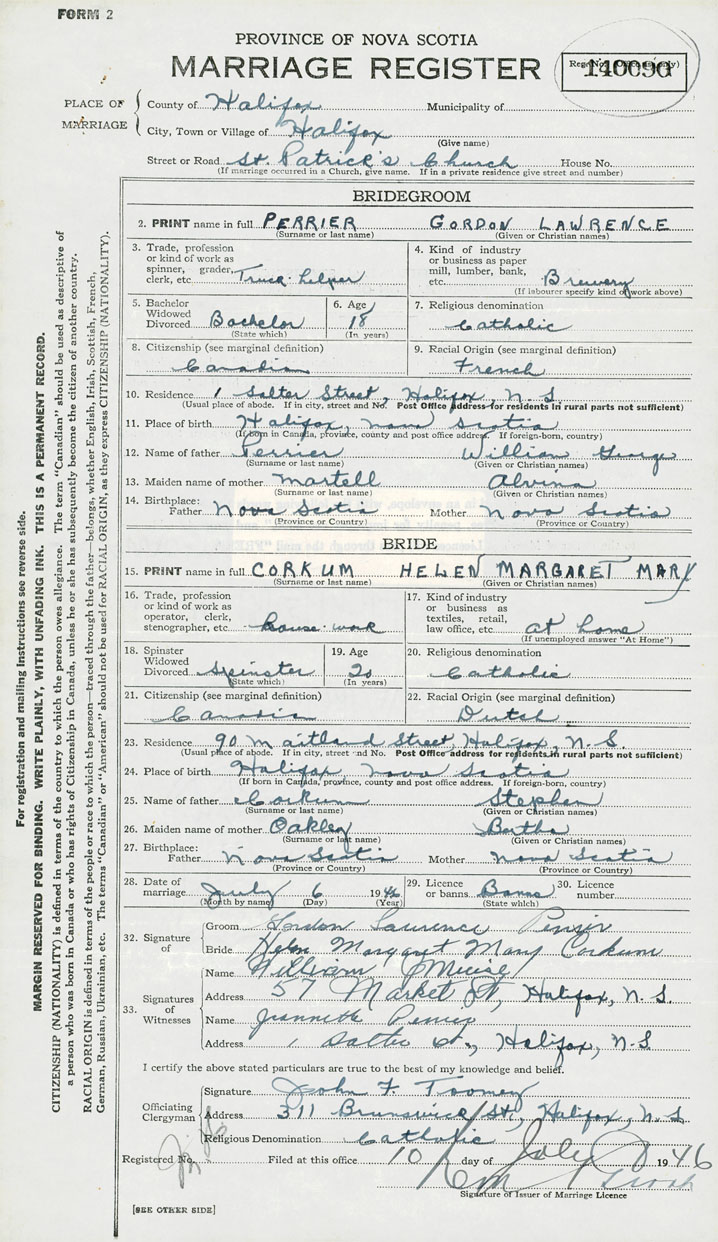 FORM 2
PROVINCE OF NOVA SCOTIA
MARRIAGE REGISTER
PLACE OF MARRIAGE
County of Halifax Municipality of
City, Town or Village of Halifax
(Give name)
Street or Road St. Patrick's Church House No.
(If marriage occurred in a Church, give name. If in a private residence give street and number)
BRIDEGROOM
2. PRINT name in full PERRIER GORDON LAWRENCE
(Surname or last name) (Given or Christian names)
3. Trade, profession or kind of work as spinner, grader, clerk, etc. Truck-helper
4. Kind of industry or business as paper mill, lumber, bank, etc. Brewery
(If labourer specify kind of work above)
5. Bachelor Widowed Divorced Bachelor
(State which)
6. Age 18
(In years)
7. Religious denomination Catholic
8. Citizenship (see marginal definition) Canadian
9. Racial Origin (see marginal definition) French
10. Residence 1 Salter Street, Halifax, N.S.
(Usual place of abode. If in city, street and No. Post Office address for residents in rural parts not sufficient)
11. Place of birth Halifax, Nova Scotia
(If born in Canada, province, county and post office address. If foreign-born, country)
12. Name of father Perrier William George
(Surname or last name) (Given or Christian names)
13. Maiden name of mother Martell Alvina
(Surname or last name) (Given or Christian names)
14. Birthplace: Father Nova Scotia Mother Nova Scotia
(Province or Country) (Province or Country)
BRIDE
15. PRINT name in full CORKUM HELEN MARGARET MARY
(Surname or last name) (Given or Christian names)
16. Trade, profession or kind of work as operator, clerk, stenographer, etc. house-work
17. Kind of industry or business as textiles, retail, law office, etc. at home
(If unemployed answer "At Home")
18. Spinster Widowed Divorced Spinster
(State which)
19. Age 20
(In years)
20. Religious denomination Catholic
21. Citizenship (see marginal definition) Canadian
22. Racial Origin (see marginal definition) Dutch
23. Residence 90 Maitland Street, Halifax, N.S.
(Usual place of abode. If in city, street and No. Post Office address for residents in rural parts not sufficient)
24. Place of birth Halifax, Nova Scotia
(If born in Canada, province, county and post office address. If foreign-born, country)
25. Name of father Corkum Stephen
(Surname or last name) (Given or Christian names)
26. Maiden name of mother Oakley Bertha
(Surname or last name) (Given or Christian names)
27. Birthplace: Father Nova Scotia Mother Nova Scotia
(Province or Country) (Province or Country)
28. Date of marriage July 6 1946
(Month by name) (Day) (Year)
29. Licence or banns Banns
(State which)
30. Licence number
32. Signature of
Groom Gordon Lawrence Perrier
Bride Helen Margaret Mary Corkum
33. Signatures of Witnesses
Name William J Muise
Address 57 Market St, Halifax, N.S.
Name Jeannette Perrier
Address 1 Salter St., Halifax, N.S.
I certify the above stated particulars are true to the best of my knowledge and belief.
Officiating Clergyman
Signature John F. Toomey
Address 311 Brunswick St., Halifax, N.S.
Religious Denomination Catholic
Registered No. Filed at this office 10 day of July 1946
Signature of Issuer of Marriage Licence
[SEE OTHER SIDE]
For registration and mailing instructions see reverse side.
MARGIN RESERVED FOR BINDING. WRITE PLAINLY, WITH UNFADING INK. THIS IS A PERMANENT RECORD.
CITIZENSHIP (NATIONALITY) is defined in terms of the country to which the person owes allegiance. The term "Canadian" should be used as descriptive of
a person who was born in Canada or who has rights of Citizenship in Canada, unless he or she has subsequently become the citizen of another country.
RACIAL ORIGIN is defined in terms of the people or race to which the person—traced through the father—belongs, whether English, Irish, Scottish, French,
German, Russian, Ukrainian, etc. The terms "Canadian" or "American" should not be used for RACIAL ORIGIN, as they express CITIZENSHIP (NATIONALITY).